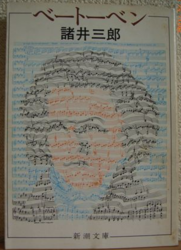 ベートーベン
諸井三郎
新潮文庫